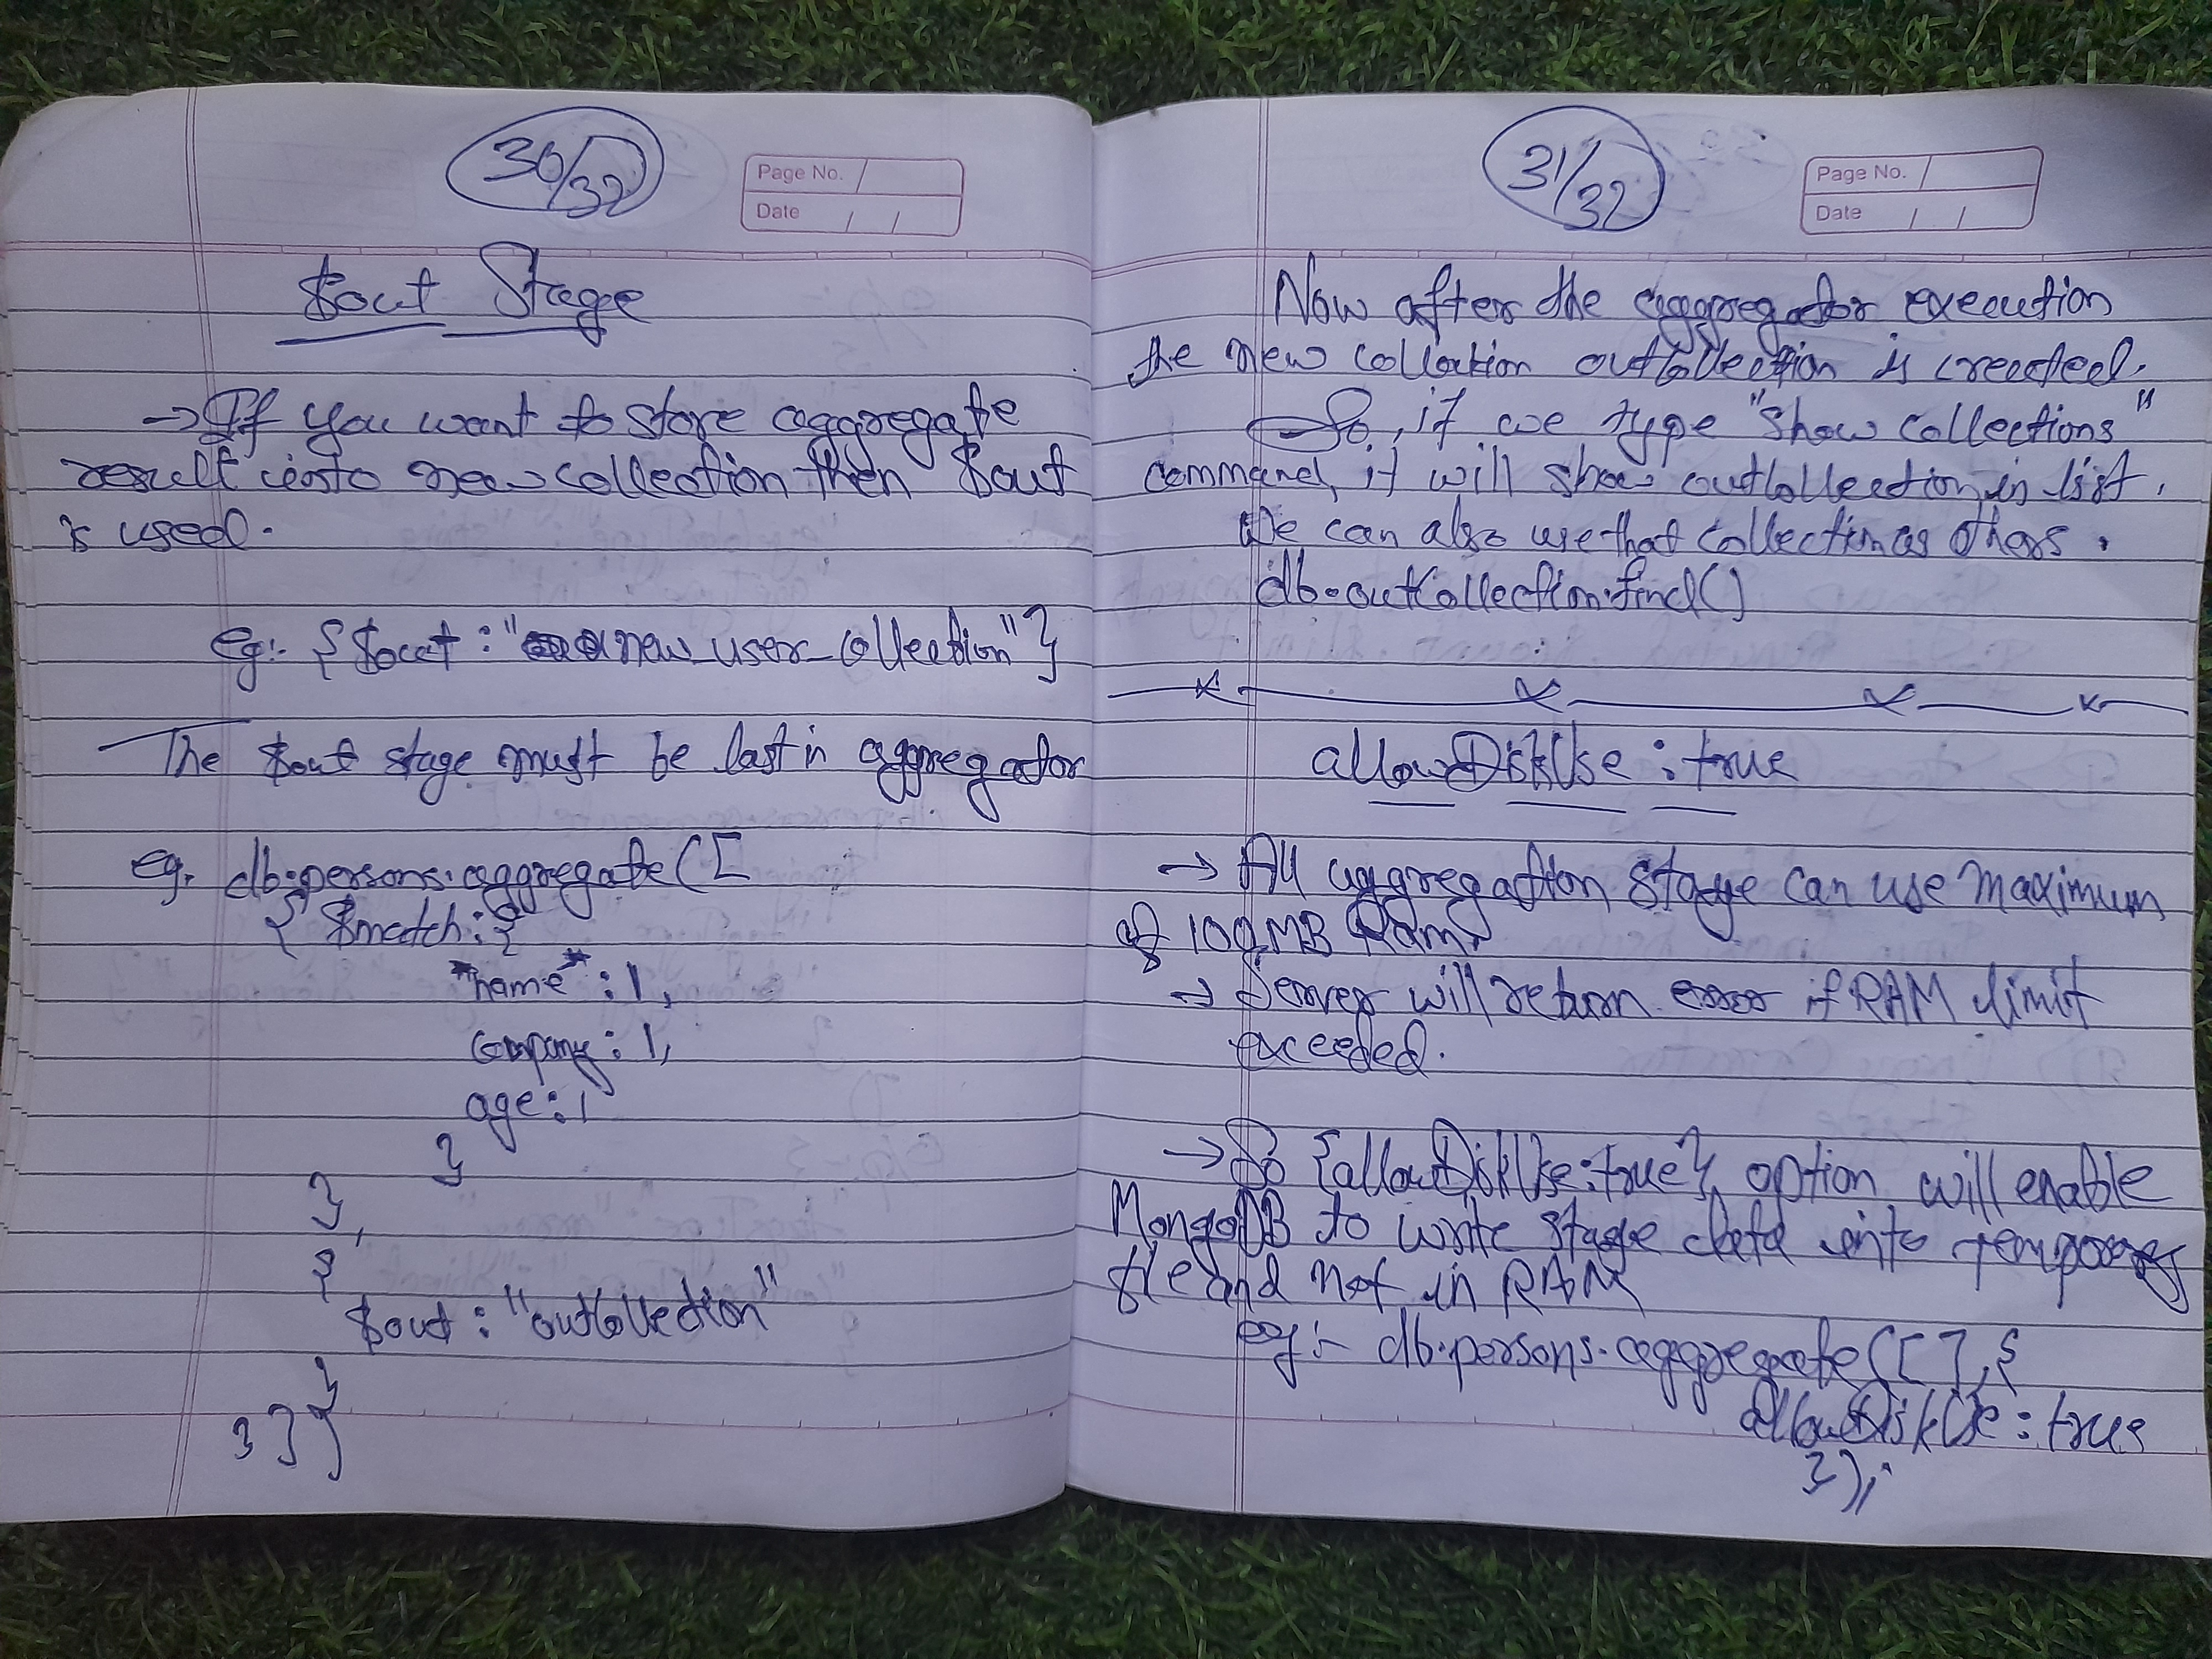 30/32
Page No.
Date / /
$out Stage
→ If you want to store aggregate
result into new collection then $out
is used.
Eg:- { $out : "new_user_collection" }
The $out stage must be last in aggregator
eg. db.persons.aggregate([
{ $match : {
"name" : 1,
company : 1,
age : 1
}
},
{
$out : "outCollection"
}
}])
31/32
Page No.
Date / /
Now after the aggregator execution
the new collation outCollection is created.
So, if we type "show collections"
command, it will show outCollection in list.
We can also use that collection as others.
db.outCollection.find()
allowDiskUse : true
→ All aggregation stage can use maximum
of 100 MB Ram.
→ Server will return error if RAM limit
exceeded.
→ So {allowDiskUse:true} option will enable
MongoDB to write stage data into temporary
file and not in RAM
eg:- db.persons.aggregate([], {
allowDiskUse : true
});